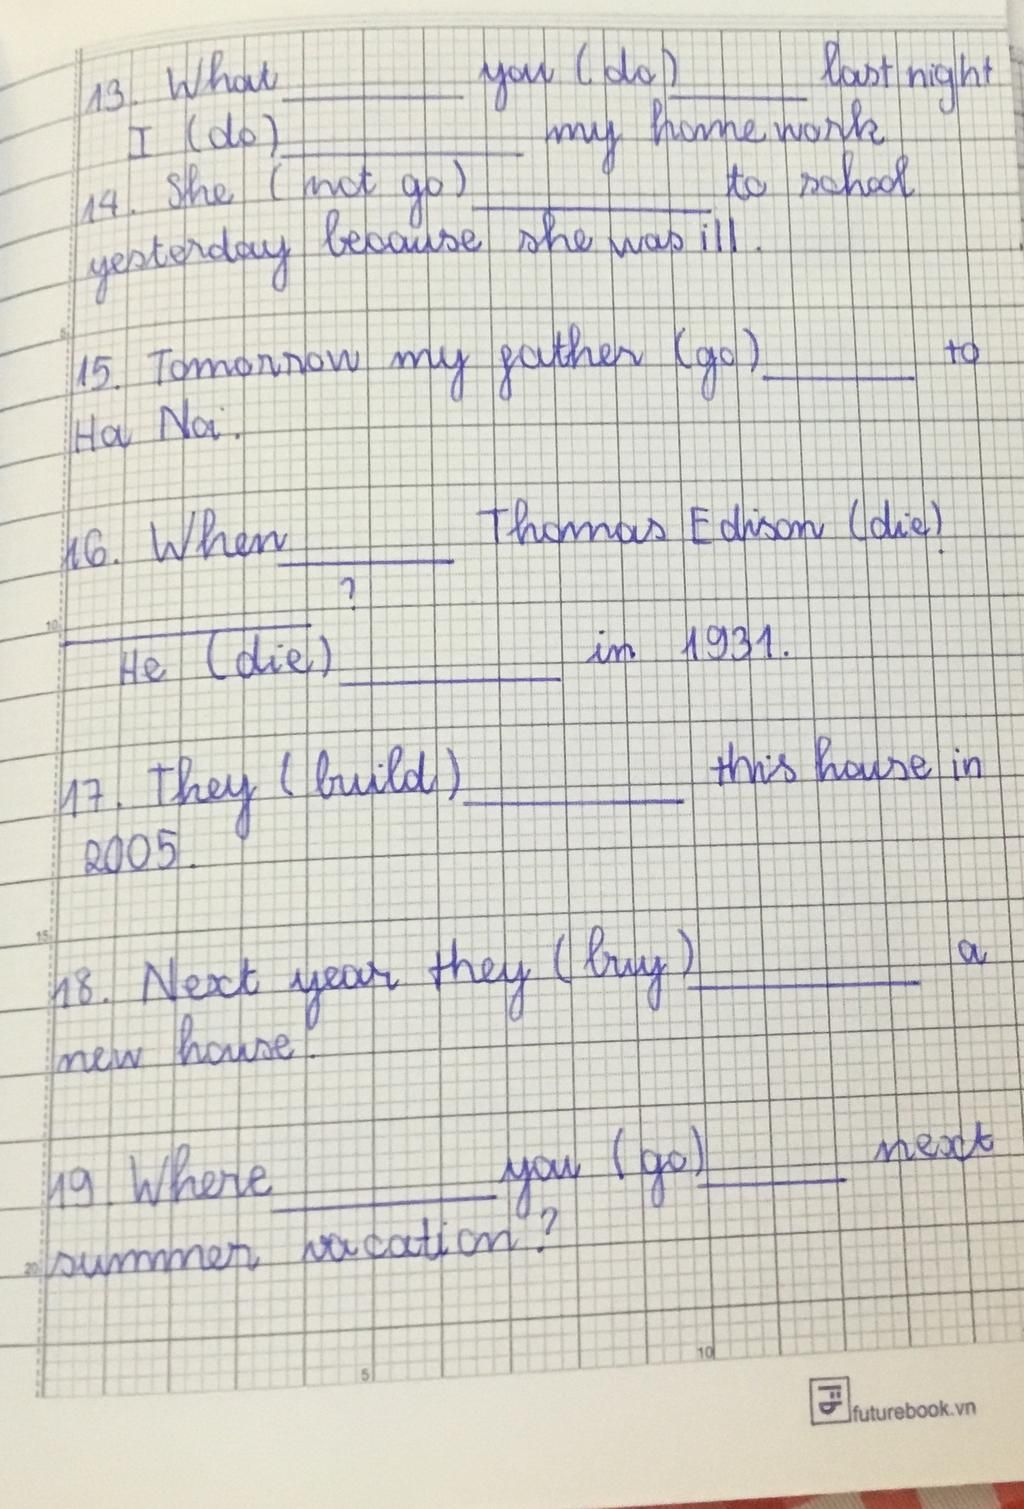 13. What ________ you (do) ______ last night
I (do) __________ my homework
14. She (not go) __________ to school
yesterday because she was ill.
5
15. Tomorrow my father (go) ______ to
Ha Noi.
16. When ________ Thomas Edison (die)
10 __________ ?
He (die) __________ in 1931.
17. They (build) __________ this house in
2005.
15
18. Next year they (buy) __________ a
new house.
19. Where __________ you (go) ______ next
20 summer vacation?
5 10
futurebook.vn